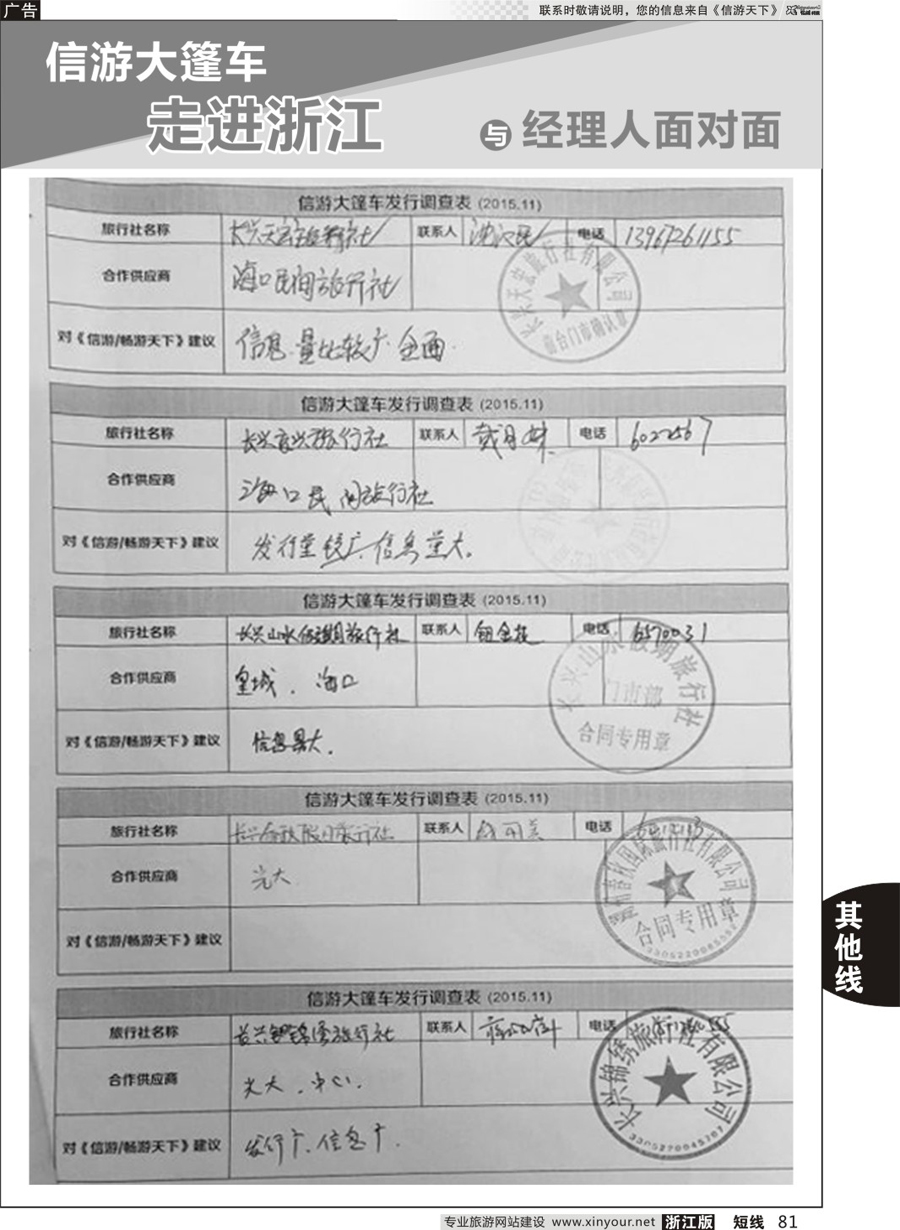 广告
联系时敬请说明，您的信息来自《信游天下》
信游大篷车
走进浙江
与 经理人面对面
信游大篷车发行调查表 (2015.11)
旅行社名称 长兴天宏旅行社 联系人 电话
合作供应商 海口民间旅行社
长兴天宏旅行社有限公司
对《信游/畅游天下》建议 信息量比较广 全面.
信游大篷车发行调查表 (2015.11)
旅行社名称 联系人 电话 6022567
合作供应商 海口民间旅行社
对《信游/畅游天下》建议 发行量较广、信息量大.
信游大篷车发行调查表 (2015.11)
旅行社名称 长兴山水假期旅行社 联系人 电话 6570031
合作供应商 皇城、海口
长兴山水假期旅行社
门市部
合同专用章
对《信游/畅游天下》建议 信息量大.
信游大篷车发行调查表 (2015.11)
旅行社名称 联系人 电话
合作供应商 光大
合同专用章
对《信游/畅游天下》建议
信游大篷车发行调查表 (2015.11)
旅行社名称 长兴锦绣旅行社 联系人 电话
合作供应商 光大、中心.
长兴锦绣旅行社有限公司
对《信游/畅游天下》建议 发行广、信息广.
其他线
专业旅游网站建设 www.xinyour.net 浙江版 短线 81